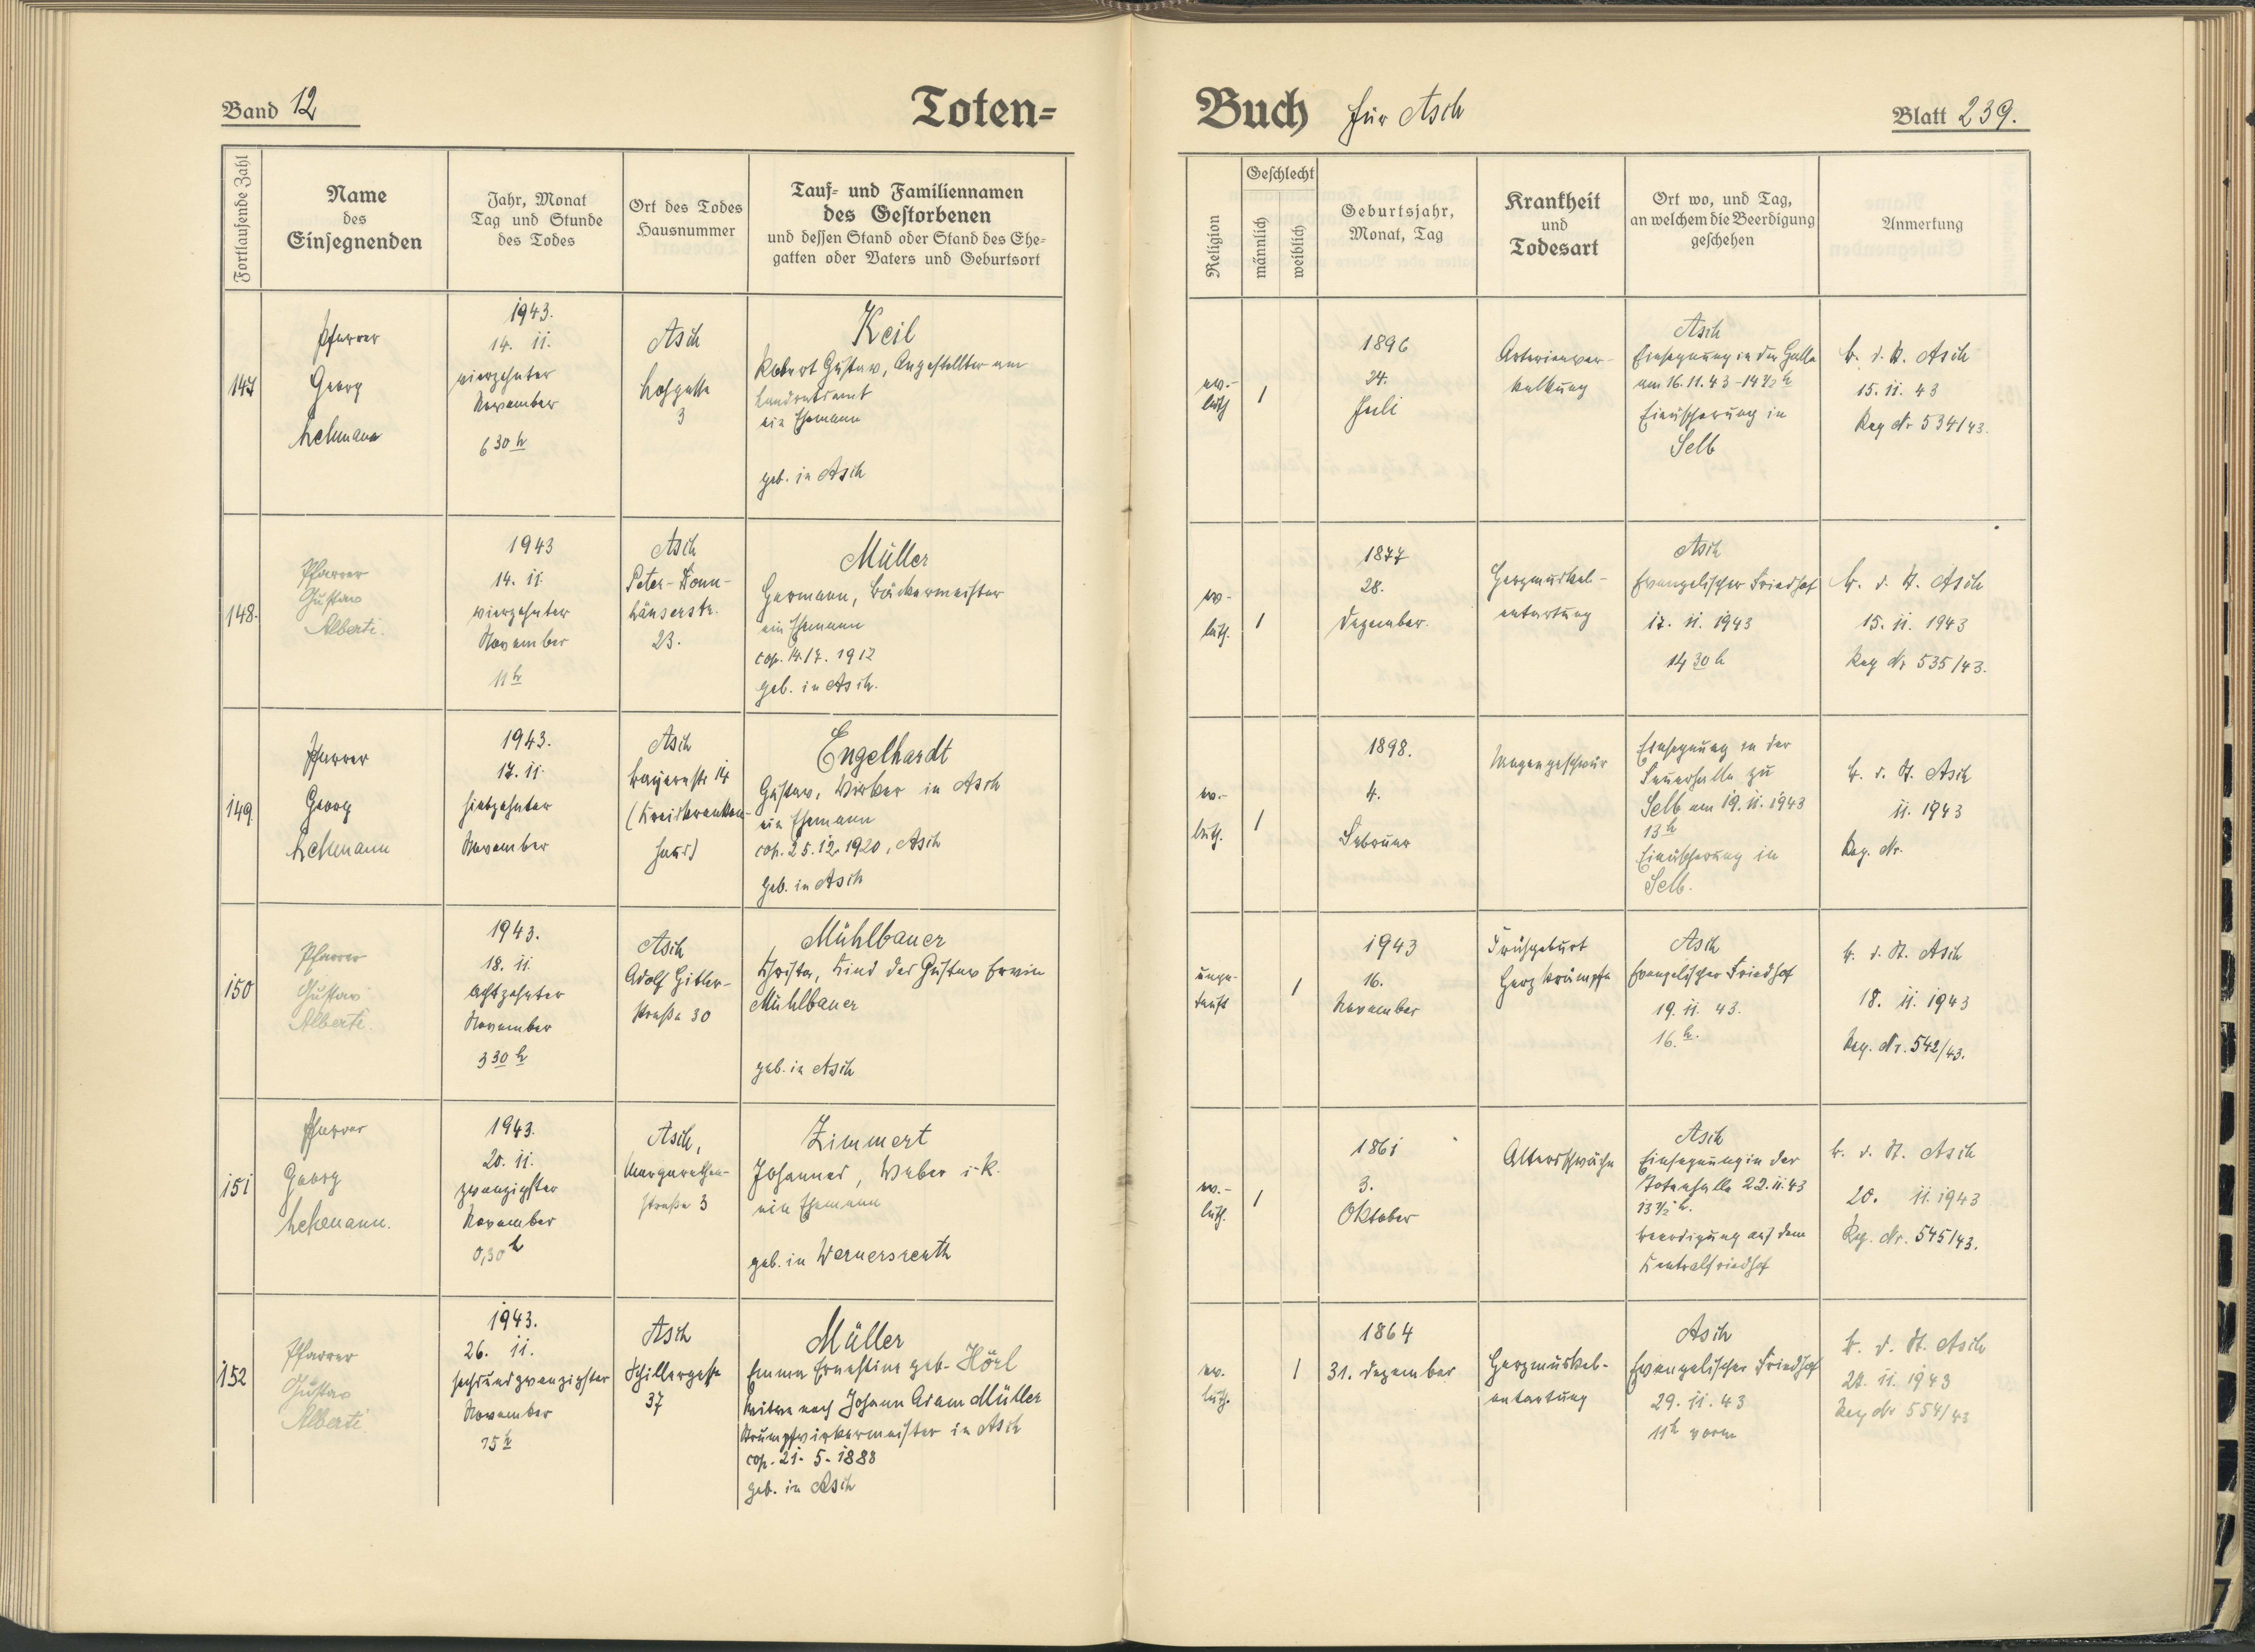 Band 12
Toten=
Buch für Asch
Blatt 239.
Fortlaufende Zahl
Name
des
Einsegnenden
Jahr, Monat
Tag und Stunde
des Todes
Ort des Todes
Hausnummer
Tauf= und Familiennamen
des Gestorbenen
und dessen Stand oder Stand des Ehe=
gatten oder Vaters und Geburtsort
Religion
Geschlecht
männlich
weiblich
Geburtsjahr,
Monat, Tag
Krankheit
und
Todesart
Ort wo, und Tag,
an welchem die Beerdigung
geschehen
Anmerkung
147
Pfarrer
Georg
Lehmann
1943.
14. 11.
vierzehnter
November
6 30 h
Asch
Lohgasse
3
Keil
Robert Gustav, Angestellter am
Landratsamt
ein Ehemann
geb. in Asch
ev.-
luth
1
1896
24.
Juli
Arterienver-
kalkung
Asch
Einsegnung in der Halle
am 16.11.43 - 14 1/2 h
Einäscherung in
Selb
b. d. St. Asch
15. 11. 43
Reg Nr 534/43.
148.
Pfarrer
Gustav
Alberti.
1943
14. 11.
vierzehnter
November
11 h
Asch
Peter-Donn-
häuserstr.
23.
Müller
Hermann, Bäckermeister
ein Ehemann
cop. 14.17. 1912
geb. in Asch.
ev.-
luth.
1
1877
28.
Dezember.
Herzmuskel-
entartung
Asch
Evangelischer Friedhof
17. 11. 1943
14 30 h
b. d. St. Asch
15. 11. 1943
Reg Nr 535/43.
149
Pfarrer
Georg
Lehmann
1943.
17. 11.
siebzehnter
November
Asch
Bayernstr. 14
(Kreiskranken-
haus)
Engelhardt
Gustav, Wirker in Asch
ein Ehemann
cop. 25.12.1920, Asch
geb. in Asch
ev.-
luth.
1
1898.
4.
Februar
Magengeschwür
Einsegnung in der
Feuerhalle zu
Selb am 19. 11. 1943
13 h
Einäscherung in
Selb.
b. d. St. Asch
11. 1943
Reg. Nr.
150
Pfarrer
Gustav
Alberti.
1943.
18. 11.
achtzehnter
November
3 30 h
Asch
Adolf Hitler-
straße 30
Mühlbauer
Christa, Kind des Gustav Erwin
Mühlbauer
geb. in Asch
unge-
tauft
1
1943
16.
November
Frühgeburt
Herzkrämpfe
Asch
Evangelischer Friedhof
19. 11. 43.
16. h.
b. d. St. Asch
18. 11. 1943
Reg. Nr. 542/43.
151
Pfarrer
Georg
Lehmann.
1943.
20. 11.
zwanzigster
November
0,30 h
Asch,
Margarethen-
straße 3
Zimmert
Johannes, Weber i. R.
ein Ehemann
geb. in Wernersreuth
ev.-
luth.
1
1861
3.
Oktober
Altersschwäche
Asch
Einsegnung in der
Totenhalle 22. 11. 43
13 1/2 h.
Beerdigung auf dem
Zentralfriedhof
b. d. St. Asch
20. 11. 1943
Reg. Nr. 545/43.
152
Pfarrer
Gustav
Alberti.
1943.
26. 11.
sechsundzwanzigster
November
15 h
Asch
Schillergasse
37
Müller
Emma Ernestine geb. Hörl
Witwe nach Johann Adam Müller
Strumpfwirkermeister in Asch
cop. 21. 5. 1888
geb. in Asch
ev.
luth.
1
1864
31. Dezember
Herzmuskel-
entartung
Asch
Evangelischer Friedhof
29. 11. 43
11 h vorm
b. d. St. Asch
11. 1943
Reg Nr 554/43